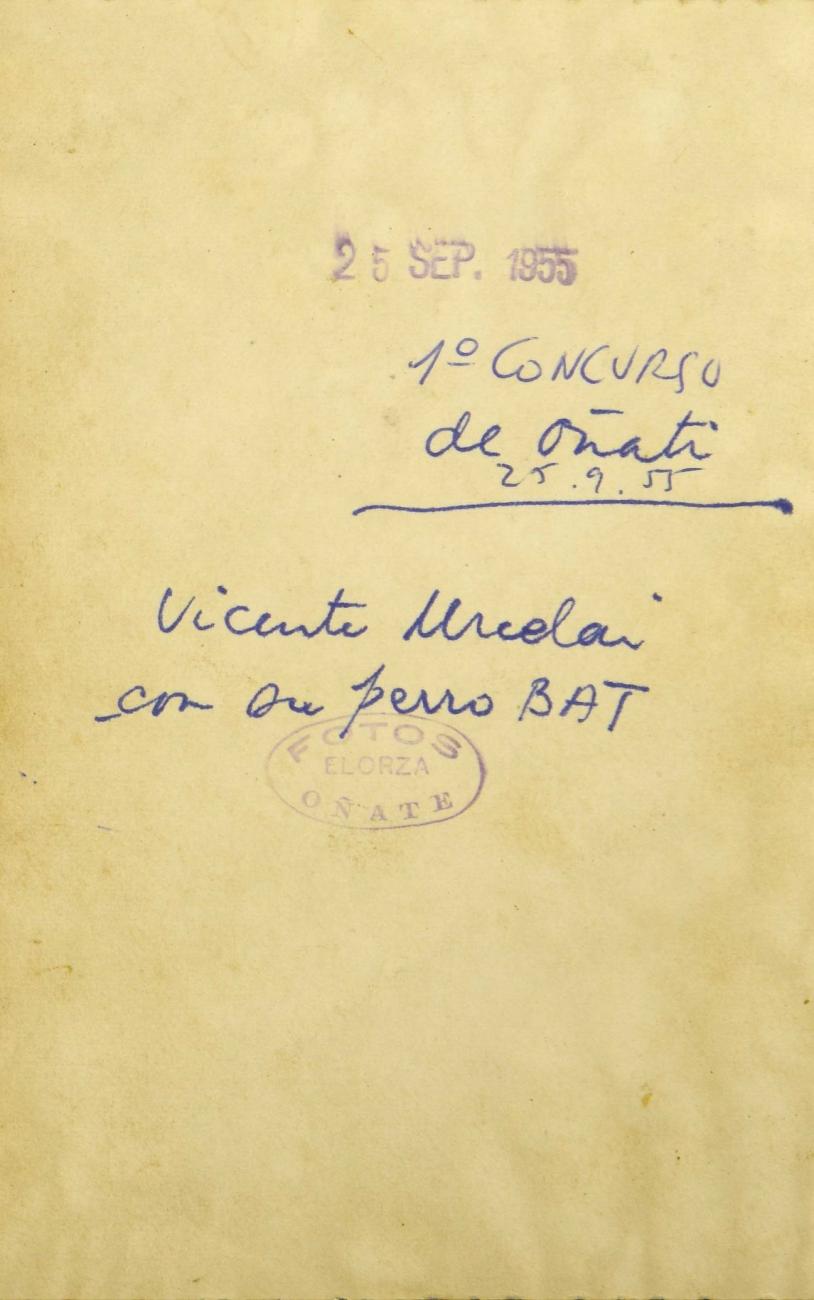 25 SEP. 1955
1º CONCURSO
de Oñati
25.9.55
Vicente Uredai
con su perro BAT
FOTOS
ELORZA
OÑATE